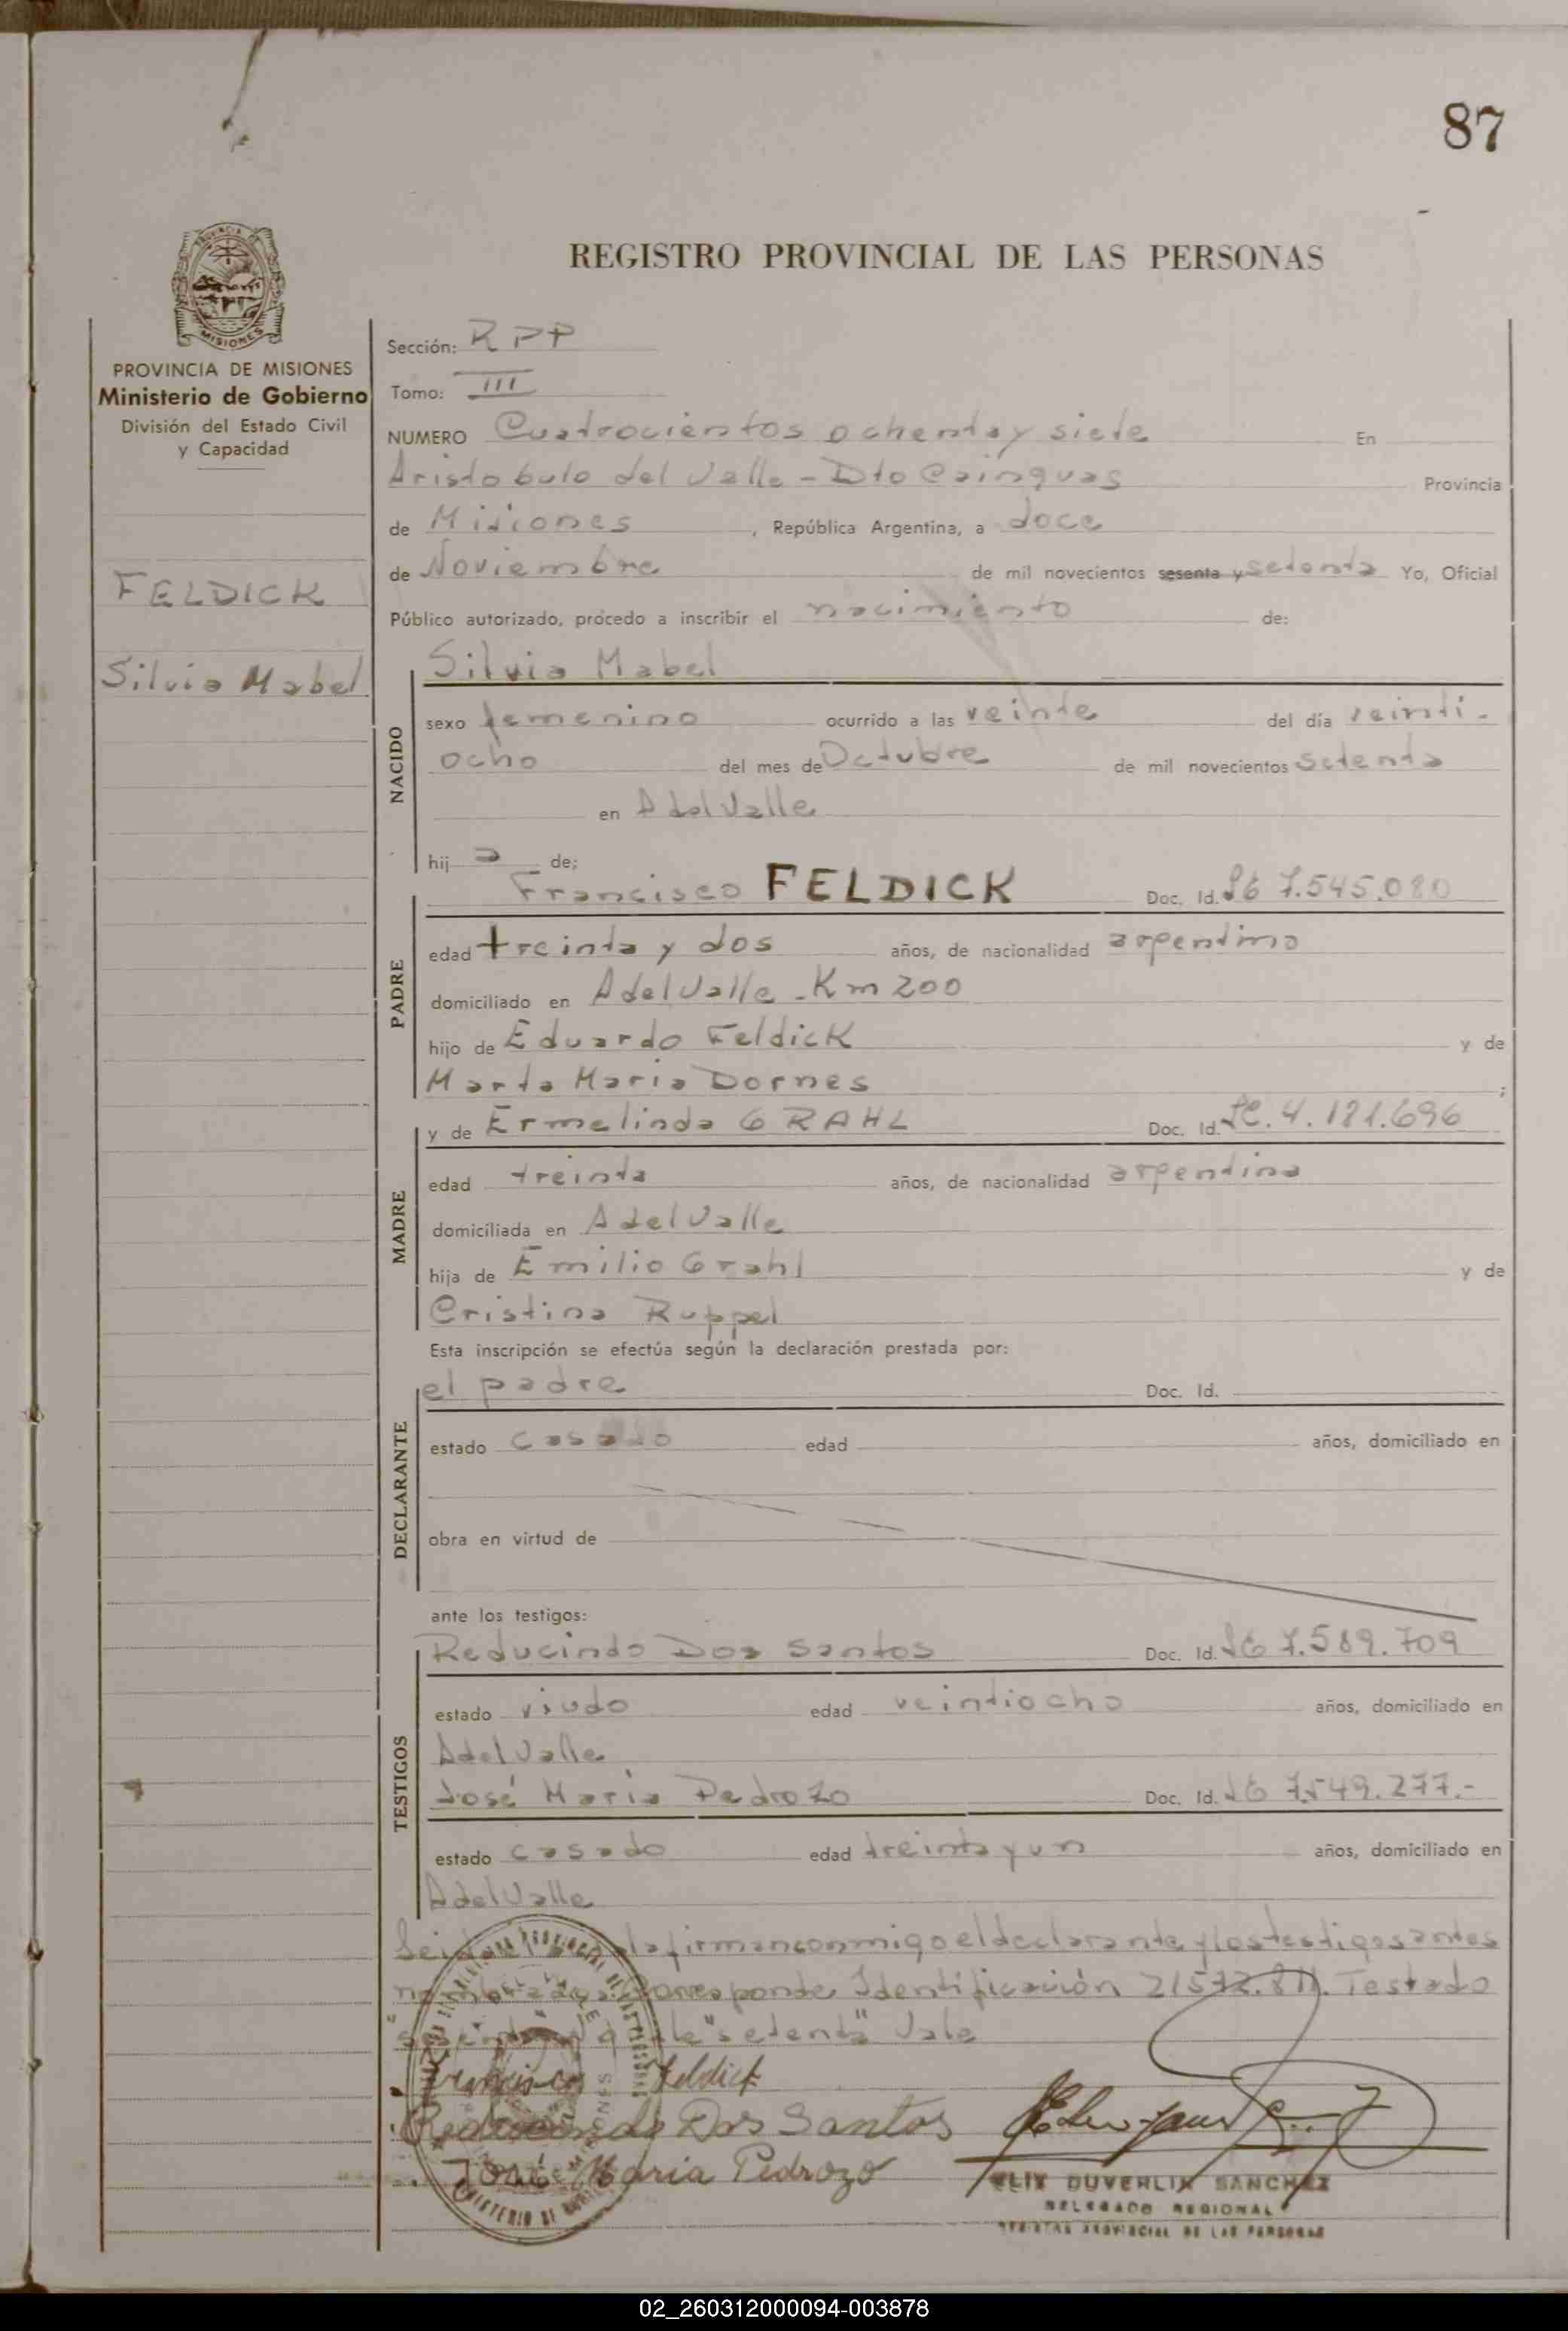 87
REGISTRO PROVINCIAL DE LAS PERSONAS
PROVINCIA DE MISIONES
Ministerio de Gobierno
División del Estado Civil
y Capacidad
FELDICK
Silvia Mabel
Sección: RPP
Tomo: III
NUMERO Cuatrocientos ochenta y siete En
Aristobulo del Valle - Dto Cainguas Provincia
de Misiones, República Argentina, a doce
de Noviembre de mil novecientos sesenta y setenta Yo, Oficial
Público autorizado, procedo a inscribir el nacimiento de:
Silvia Mabel
NACIDO
sexo femenino ocurrido a las veinte del día veinti-
ocho del mes de Octubre de mil novecientos setenta
en A del Valle
hij a de;
Francisco FELDICK Doc. Id. 7.545.080
PADRE
edad treinta y dos años, de nacionalidad argentina
domiciliado en A del Valle - Km 200
hijo de Eduardo Feldick y de
Marta Maria Dornes ;
y de Ermelinda GRAHL Doc. Id. LC. 4.181.696
MADRE
edad treinta años, de nacionalidad argentina
domiciliada en A del Valle
hija de Emilio Grahl y de
Cristina Ruppel
Esta inscripción se efectúa según la declaración prestada por:
el padre Doc. Id.
DECLARANTE
estado casado edad años, domiciliado en
obra en virtud de
ante los testigos:
Reducindo Dos Santos Doc. Id. 7.589.709
TESTIGOS
estado viudo edad veintiocho años, domiciliado en
A del Valle
José Maria Pedrozo Doc. Id. 7.549.277.-
estado casado edad treinta y un años, domiciliado en
A del Valle
Leida el acta la firman conmigo el declarante y los testigos antes
nombrados. Corresponde Identificación 21.572.811. Testado
"setenta" Vale
Francisco Feldick
Reducindo Dos Santos
José Maria Pedrozo
ELIX DUVERLIX SANCHEZ
DELEGADO REGIONAL
PROVINCIAL DE LAS PERSONAS
02_260312000094-003878